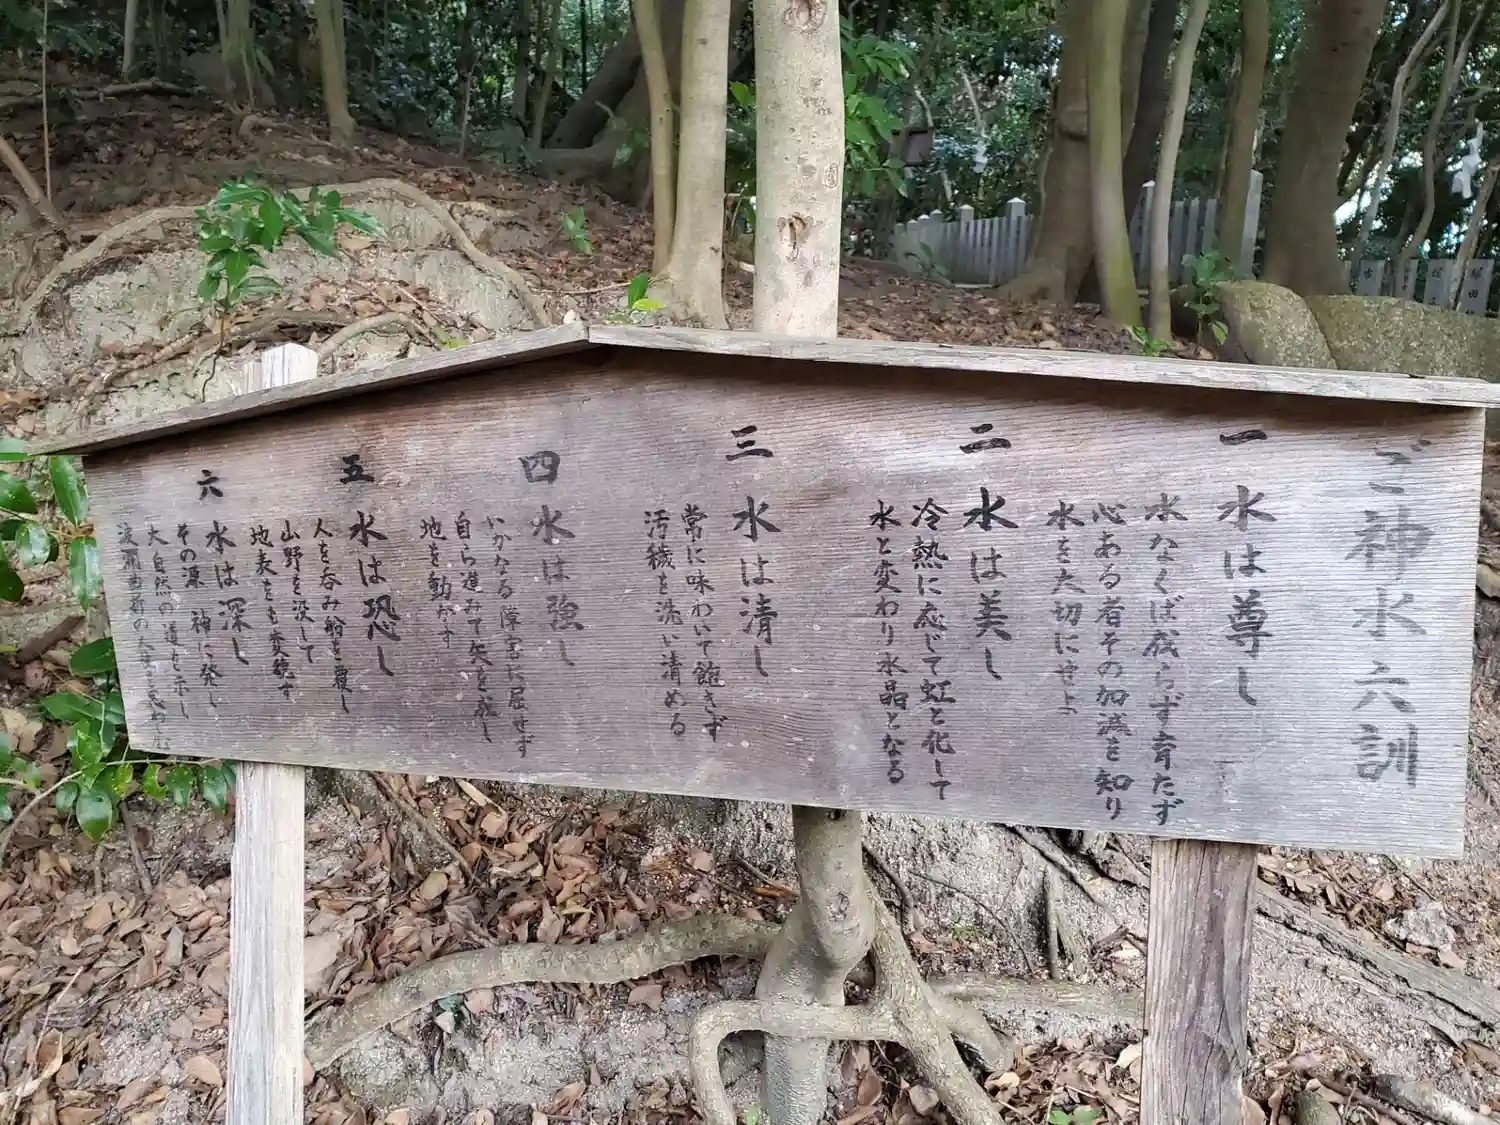 ご神水六訓
一 水は尊し
水なくば成らず育たず
心ある者その加減を知り
水を大切にせよ
二 水は美し
冷熱に応じて虹と化して
水と変わり水晶となる
三 水は清し
常に味わいて飽きず
汚穢を洗い清める
四 水は強し
いかなる障害に屈せず
自ら進みて矢を成し
地を動かす
五 水は恐し
人を呑み船を覆し
山野を没して
地表をも変貌す
六 水は深し
その源 神に発し
大自然の道を示し
波瀾曲折の人生